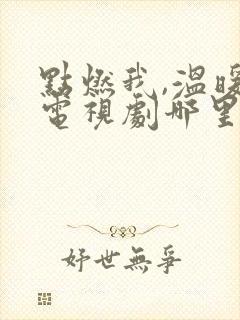 點燃我,溫暖
電視劇哪里
妤世無爭